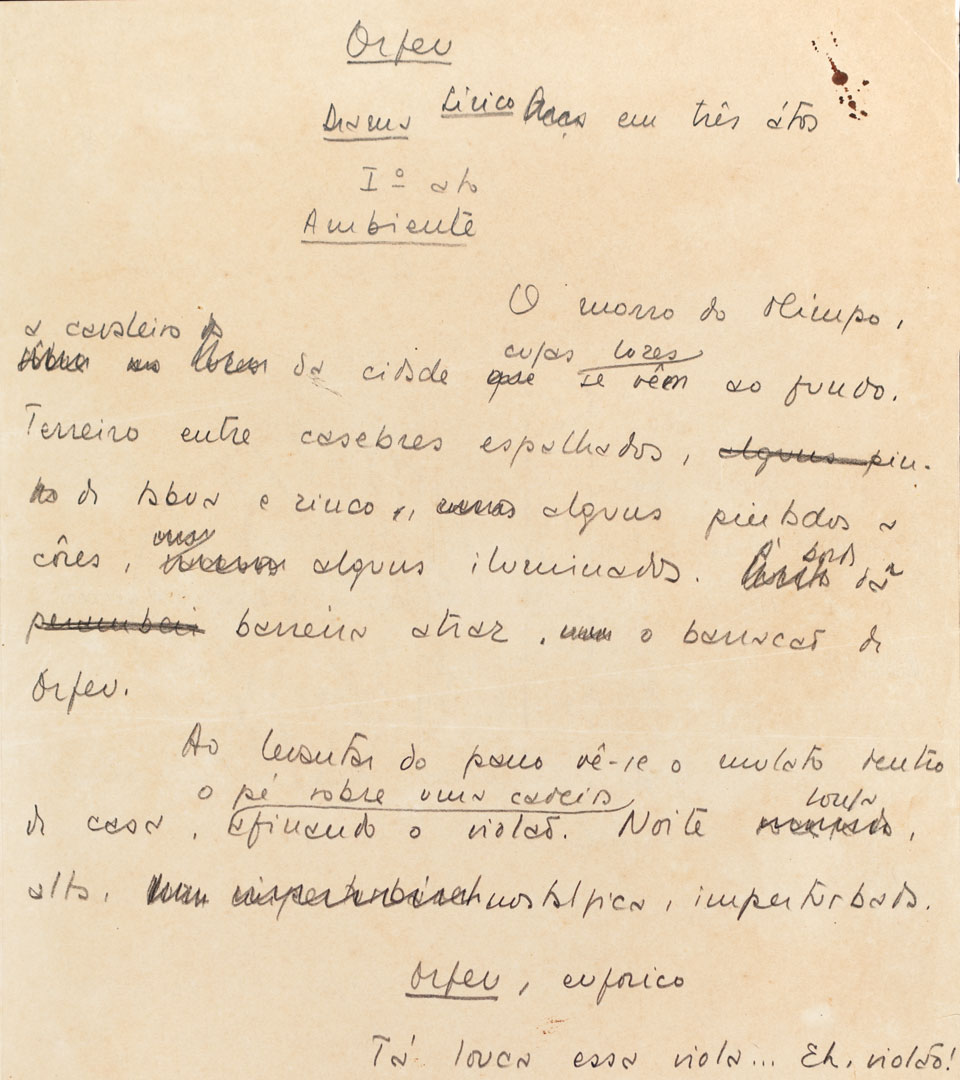 Orfeu
Drama Lírico em três átos
Iº ato
Ambiente
O morro do Olimpo,
a cavaleiro
da cidade cujas luzes se vêm ao fundo.
Terreiro entre casebres espalhados, alguns pin-
de tabua e zinco, alguns pintados a
côres, ous alguns iluminados. À borda da
perambei barreira atraz, o barracaõ de
Orfeu.
Ao levantar do pano vê-se o mulato dentro
o pé sobre uma cadeira
de casa, afinando o violaõ. Noite,
alta, nostalgica, imperturbada.
Orfeu, euforico
Tá louca essa viola... Eh, violão!